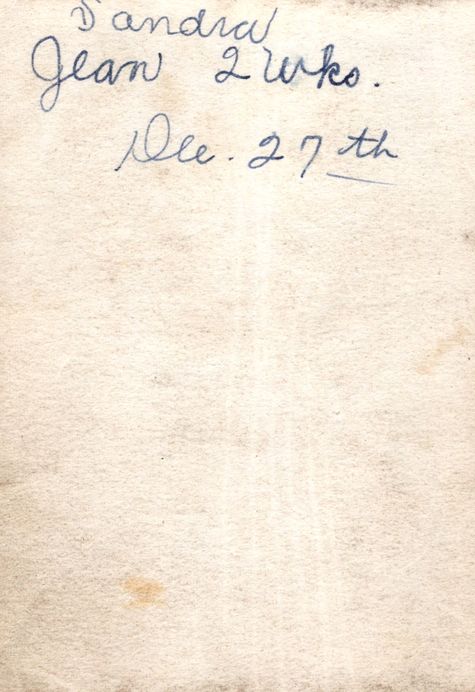 Sandra
Jean 2 wks.
Dec. 27th